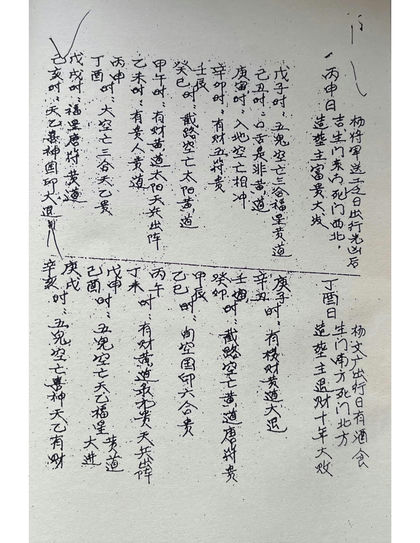 杨将军送二娘日出行先凶后
吉生门东方死门西北方
丙申日 造葬主富贵大发
戊子时:五鬼空亡三合福星黄道
己丑时:口舌是非黄道
庚寅时:入地空亡相冲
辛卯时:有财五符贵
壬辰
癸巳时:截路空亡太阳黄道
甲午时:有财黄道太阳天兵出阵
乙未时:有贵人黄道
丙申
丁酉时:大空亡三合天乙贵
戊戌时:福星唐符黄道
己亥时:天乙喜神国印大退
杨文广出行日有酒食
生门南方死门北方
丁酉日 造葬主退财十年大败
庚子时:有横财黄道大退
辛丑
壬寅
癸卯时:截路空亡黄道唐符贵
甲辰
乙巳时:旬空国印六合贵
丙午
丁未时:有财黄道贵天兵出阵
戊申
己酉时:五鬼空亡天乙福星黄道大进
庚戌
辛亥时:五鬼空亡喜神天乙有财